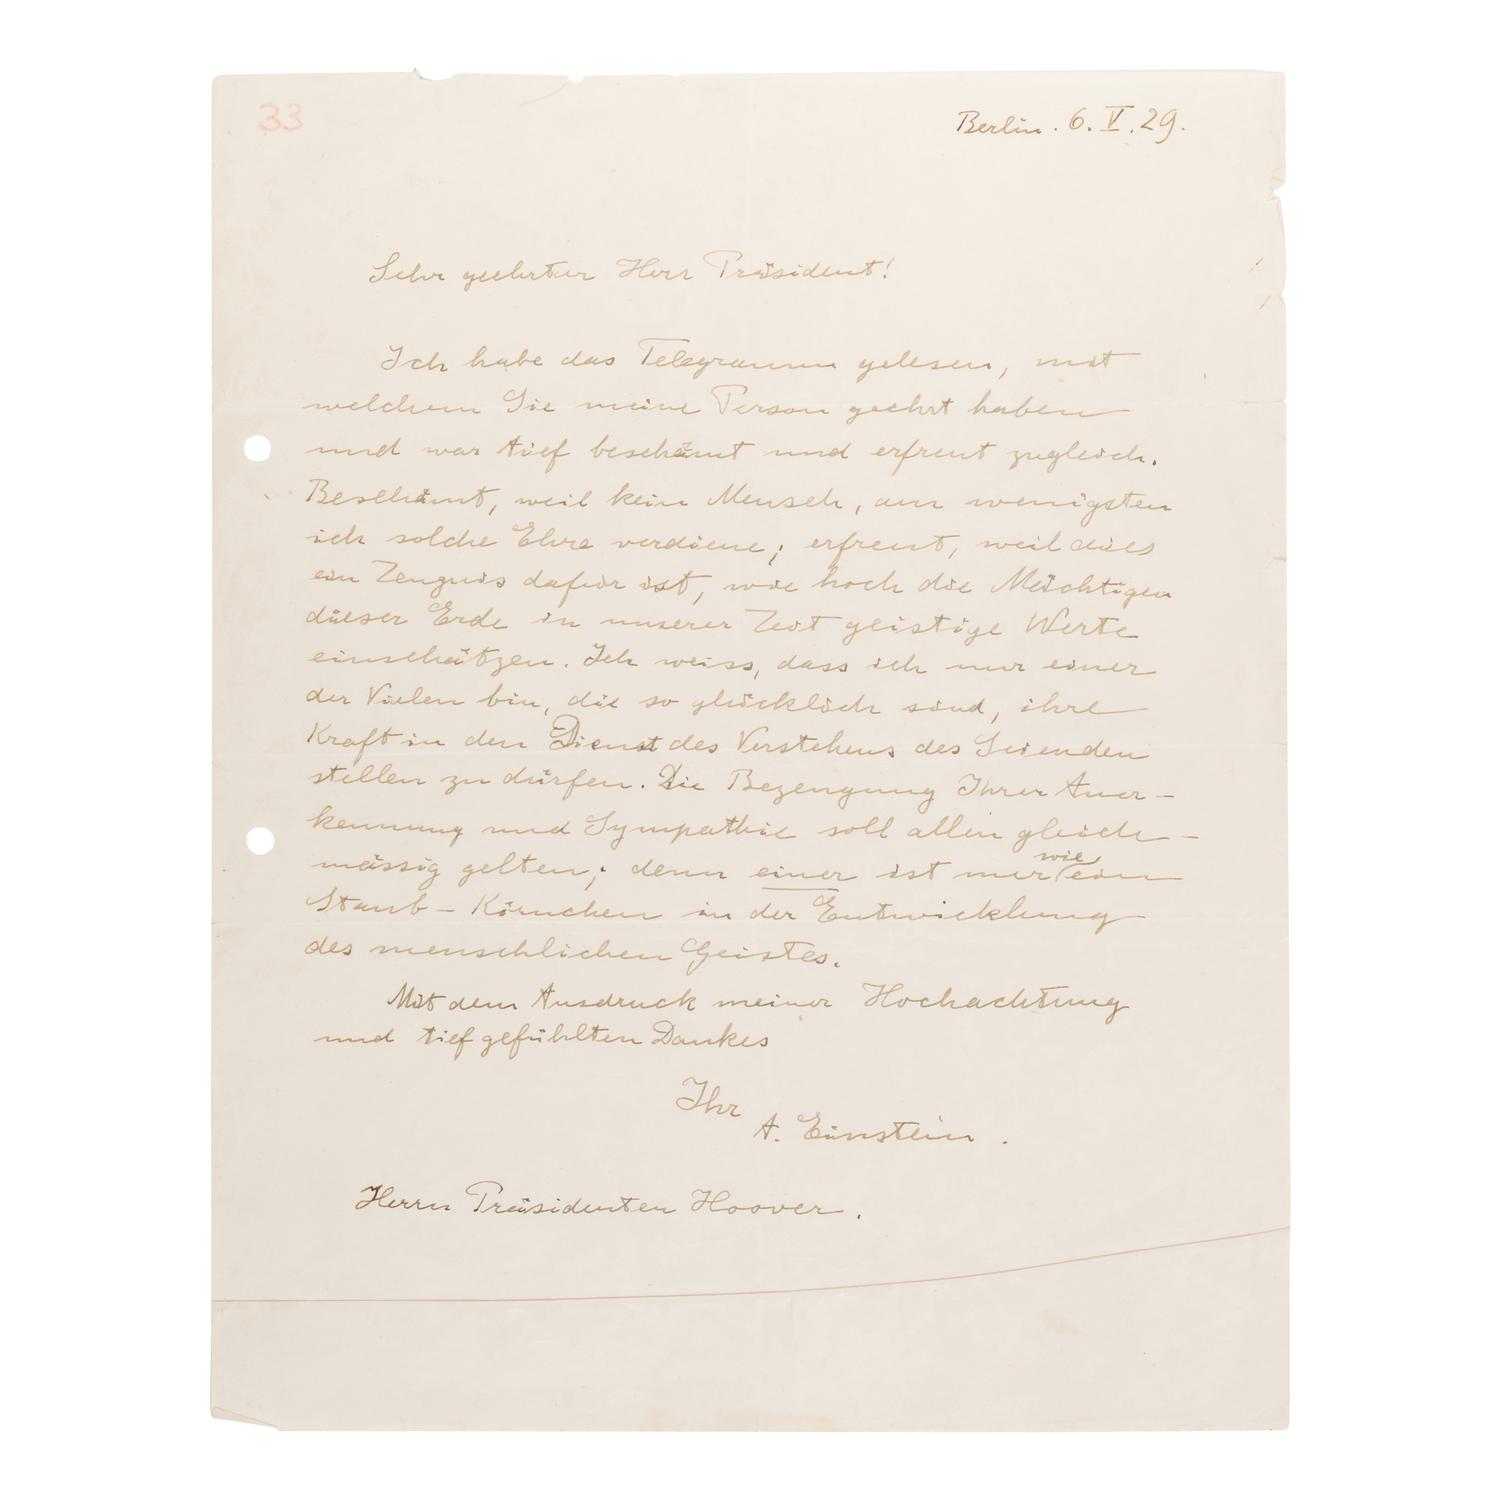 33
Berlin. 6. V. 29.
Sehr geehrter Herr Präsident!
Ich habe das Telegramm gelesen, mit
welchem Sie meine Person geehrt haben
und war tief beschämt und erfreut zugleich.
Beschämt, weil kein Mensch, am wenigsten
ich solche Ehre verdiene; erfreut, weil dies
ein Zeugnis dafür ist, wie hoch die Mächtigen
dieser Erde in unserer Zeit geistige Werte
einschätzen. Ich weiss, dass ich nur einer
der Vielen bin, die so glücklich sind, ihre
Kraft in den Dienst des Verstehens des Seienden
stellen zu dürfen. Die Bezeugung Ihrer Aner-
kennung und Sympathie soll allen gleich-
mässig gelten; denn einer ist nur wie ein
Staub-Körnchen in der Entwicklung
des menschlichen Geistes.
Mit dem Ausdruck meiner Hochachtung
und tief gefühlten Dankes
Ihr
A. Einstein.
Herrn Präsidenten Hoover.